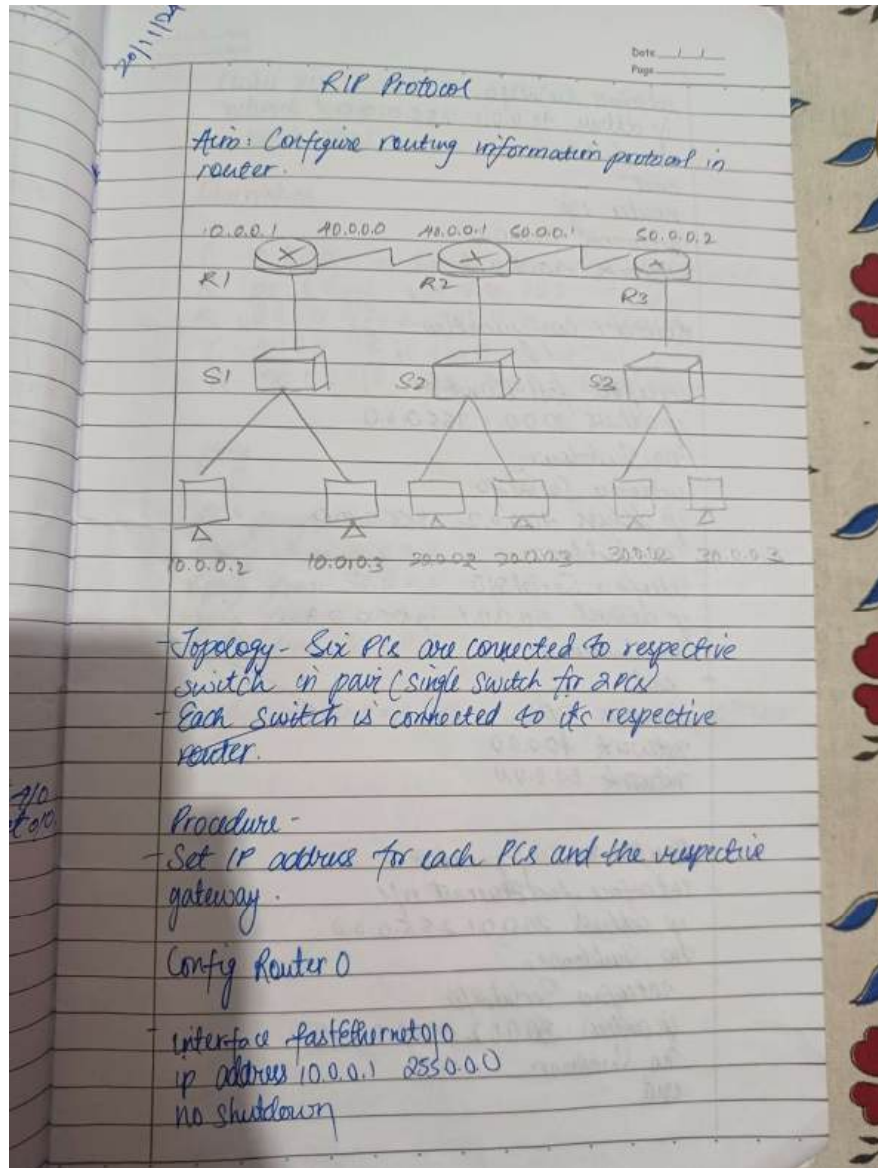 20/11/24
Date
Page
RIP Protocol
Aim: Configure routing information protocol in
router.
10.0.0.1 40.0.0.0 40.0.0.1 50.0.0.1 50.0.0.2
R1 R2 R3
S1 S2 S3
10.0.0.2 10.0.0.3 20.0.0.2 20.0.0.3 30.0.0.2 30.0.0.3
- Topology - Six PCs are connected to respective
switch in pair (single switch for 2 PCs)
- Each switch is connected to its respective
router.
Procedure -
- Set IP address for each PCs and the respective
gateway.
Config Router 0
- interface fastEthernet0/0
ip address 10.0.0.1 255.0.0.0
no shutdown